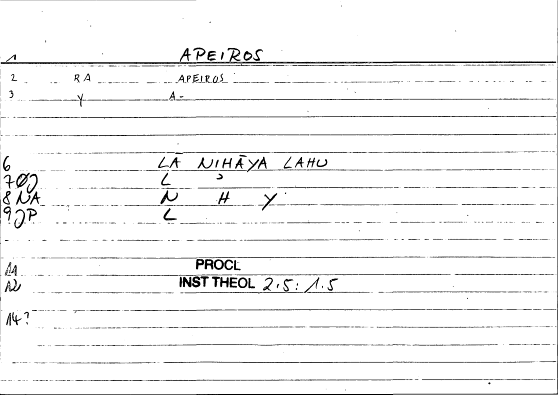 1 APEIROS
2 RA APEIROS
3 Y A-
6 LĀ NIHĀYA LAHU
7 ØJ L ʾ
8 NA N H Y
9 JP L
11 PROCL
12 INST THEOL 2.5: 1.5
14?